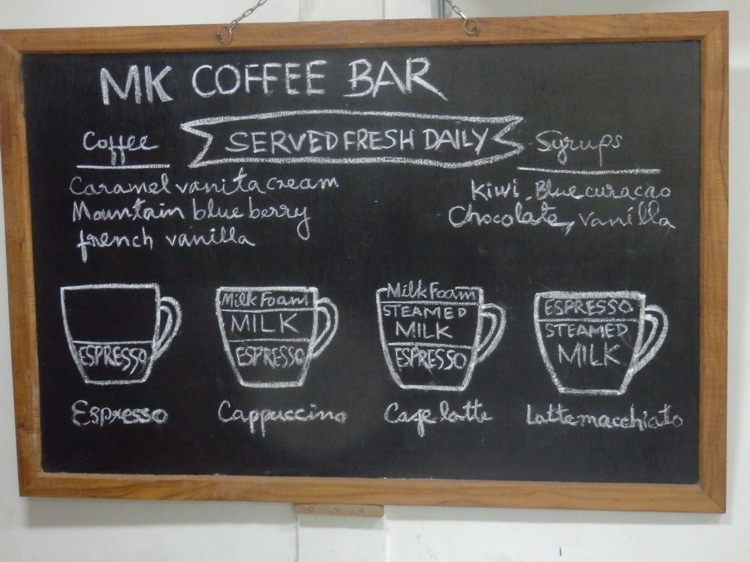 MK COFFEE BAR
SERVED FRESH DAILY
Coffee
Caramel vanita cream
Mountain blue berry
french vanilla
Syrups
Kiwi, Blue curacao
Chocolate, Vanilla
ESPRESSO
Espresso
Milk Foam
MILK
ESPRESSO
Cappuccino
Milk Foam
STEAMED
MILK
ESPRESSO
Cafe latte
ESPRESSO
STEAMED
MILK
Latte macchiato